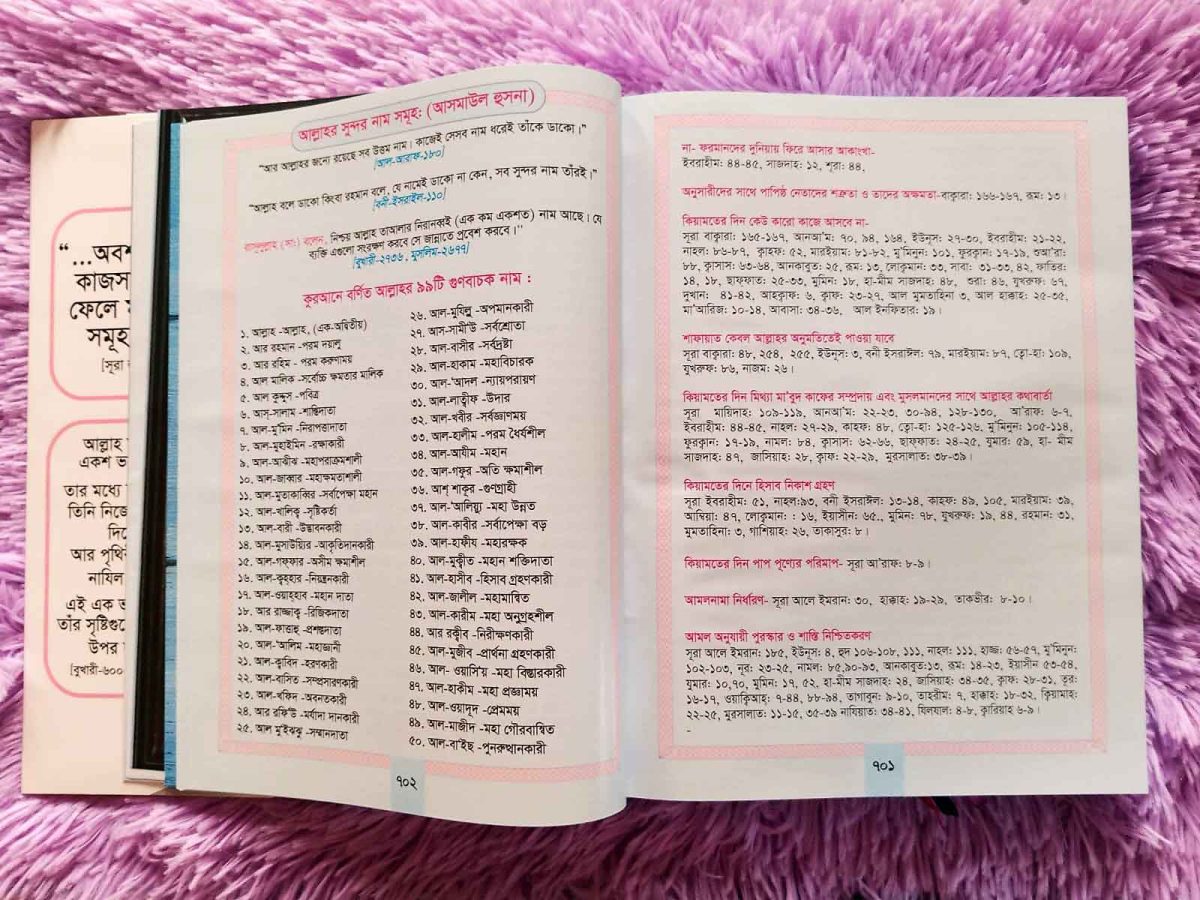 "...অবশ
কাজস
ফেলে
সমূহ
[সূরা
আল্লাহ
একশ ভ
তার মধ্যে
তিনি নিজে
দিয়ে
আর পৃথি
নাযিল
এই এক ভ
তাঁর সৃষ্টিগুে
উপর
[বুখারী-৬০০
আল্লাহর সুন্দর নাম সমূহ: (আসমাউল হুসনা)
"আর আল্লাহর জন্যে রয়েছে সব উত্তম নাম। কাজেই সেসব নাম ধরেই তাঁকে ডাকো।"
[আল-আরাফ-১৮০]
"আল্লাহ বলে ডাকো কিংবা রহমান বলে, যে নামেই ডাকো না কেন, সব সুন্দর নাম তাঁরই।"
[বনী-ইসরাইল-১১০]
রাসূলুল্লাহ (সাঃ) বলেন, নিশ্চয় আল্লাহ তাআলার নিরানব্বই (এক কম একশত) নাম আছে। যে
ব্যক্তি এগুলো সংরক্ষণ করবে সে জান্নাতে প্রবেশ করবে।"
[বুখারী-২৭৩৬, মুসলিম-২৬৭৭]
কুরআনে বর্ণিত আল্লাহর ৯৯টি গুণবাচক নাম :
১. আল্লাহ -আল্লাহ, (এক-অদ্বিতীয়)
২. আর রহমান -পরম দয়ালু
৩. আর রহিম - পরম করুণাময়
৪. আল মালিক -সর্বোচ্চ ক্ষমতার মালিক
৫. আল কুদ্দুস -পবিত্র
৬. আস-সালাম -শান্তিদাতা
৭. আল-মু'মিন -নিরাপত্তাদাতা
৮. আল-মুহাইমিন -রক্ষাকারী
৯. আল-আঝীঝ -মহাপরাক্রমশালী
১০. আল-জাব্বার -মহাক্ষমতাশালী
১১. আল-মুতাকাব্বির -সর্বাপেক্ষা মহান
১২. আল-খালিকু -সৃষ্টিকর্তা
১৩. আল-বারী -উদ্ভাবনকারী
১৪. আল-মুসাউয়্যির -আকৃতিদানকারী
১৫. আল-গফ্ফার -অসীম ক্ষমাশীল
১৬. আল-কুহ্হার -নিয়ন্ত্রনকারী
১৭. আল-ওয়াহ্হাব -মহান দাতা
১৮. আর রাজ্জাকু -রিজিকদাতা
১৯. আল-ফাত্তাহু -প্রশস্তদাতা
২০. আল-'আলিম -মহাজ্ঞানী
২১. আল-ক্বাবিদ -হরণকারী
২২. আল-বাসিত -সম্প্রসারণকারী
২৩. আল-খফিদ -অবনতকারী
২৪. আর রফি'উ -মর্যাদা দানকারী
২৫. আল মু'ইঝ্ঝু -সম্মানদাতা
২৬. আল-মুযিল্লু -অপমানকারী
২৭. আস-সামী'উ -সর্বশ্রোতা
২৮. আল-বাসীর -সর্বদ্রষ্টা
২৯. আল-হাকাম -মহাবিচারক
৩০. আল-'আদল -ন্যায়পরায়ণ
৩১. আল-লাত্বীফ -উদার
৩২. আল-খবীর -সর্বজ্ঞাণময়
৩৩. আল-হালীম -পরম ধৈর্যশীল
৩৪. আল-আযীম -মহান
৩৫. আল-গফুর -অতি ক্ষমাশীল
৩৬. আশ্ শাকুর -গুণগ্রাহী
৩৭. আল-'আলিয়্যু -মহা উন্নত
৩৮. আল-কাবীর -সর্বাপেক্ষা বড়
৩৯. আল-হাফীয -মহারক্ষক
৪০. আল-মুক্বীত -মহান শক্তিদাতা
৪১. আল-হাসীব -হিসাব গ্রহণকারী
৪২. আল-জালীল -মহামান্বিত
৪৩. আল-কারীম -মহা অনুগ্রহশীল
৪৪. আর রক্বীব -নিরীক্ষণকারী
৪৫. আল-মুজীব -প্রার্থনা গ্রহণকারী
৪৬. আল- ওয়াসি'য় -মহা বিস্তারকারী
৪৭. আল-হাকীম -মহা প্রজ্ঞাময়
৪৮. আল-ওয়াদূদ -প্রেমময়
৪৯. আল-মাজীদ -মহা গৌরবান্বিত
৫০. আল-বা'ইছ -পুনরুত্থানকারী
৭০২
না- ফরমানদের দুনিয়ায় ফিরে আসার আকাংখা-
ইবরাহীম: ৪৪-৪৫, সাজদাহ: ১২, শূরা: ৪৪,
অনুসারীদের সাথে পাপিষ্ঠ নেতাদের শত্রুতা ও তাদের অক্ষমতা-বাক্বারা: ১৬৬-১৬৭, রূম: ১৩।
কিয়ামতের দিন কেউ কারো কাজে আসবে না-
সূরা বাক্বারা: ১৬৫-১৬৭, আনআ'ম: ৭০, ৯৪, ১৬৪, ইউনূস: ২৭-৩০, ইবরাহীম: ২১-২২,
নাহল: ৮৬-৮৭, ক্বাহফ: ৫২, মারইয়াম: ৮১-৮২, মু'মিনূন: ১০১, ফুরক্বান: ১৭-১৯, শুআ'রা:
৮৮, ক্বাসাস: ৬৩-৬৪, আনকাবুত: ২৫, রূম: ১৩, লোকুমান: ৩৩, সাবা: ৩১-৩৩, ৪২, ফাতির:
১৪, ১৮, ছাফফাত: ২৫-৩৩, মুমিন: ১৮, হা-মীম সাজদাহ: ৪৮, শুরা: ৪৬, যুখরুফ: ৬৭,
দুখান: ৪১-৪২, আহক্বাফ: ৬, ক্বাফ: ২৩-২৭, আল মুমতাহিনা ৩, আল হাক্কাহ: ২৫-৩৫,
মা'আরিজ: ১০-১৪, আবাসা: ৩৪-৩৬, আল ইনফিতার: ১৯।
শাফায়াত কেবল আল্লাহর অনুমতিতেই পাওয়া যাবে
সূরা বাক্বারা: ৪৮, ২৫৪, ২৫৫, ইউনূস: ৩, বনী ইসরাঈল: ৭৯, মারইয়াম: ৮৭, ত্বো-হা: ১০৯,
যুখরুফ: ৮৬, নাজম: ২৬।
কিয়ামতের দিন মিথ্যা মা'বুদ কাফের সম্প্রদায় এবং মুসলমানদের সাথে আল্লাহর কথাবার্তা
সূরা মায়িদাহ: ১০৯-১১৯, আনআ'ম: ২২-২৩, ৩০-৯৪, ১২৮-১৩০, আ'রাফ: ৬-৭,
ইবরাহীম: ৪৪-৪৫, নাহল: ২৭-২৯, কাহফ: ৪৮, ত্বো-হা: ১২৫-১২৬, মু'মিনূন: ১০৫-১১৪,
ফুরক্বান: ১৭-১৯, নামল: ৮৪, ক্বাসাস: ৬২-৬৬, ছাফ্ফাত: ২৪-২৫, যুমার: ৫৯, হা- মীম
সাজদাহ: ৪৭, জাসিয়াহ: ২৮, ক্বাফ: ২২-২৯, মুরসালাত: ৩৮-৩৯।
কিয়ামতের দিনে হিসাব নিকাশ গ্রহণ
সূরা ইবরাহীম: ৫১, নাহল:৯৩, বনী ইসরাঈল: ১৩-১৪, কাহফ: ৪৯, ১০৫, মারইয়াম: ৩৯,
আম্বিয়া: ৪৭, লোকুমান: : ১৬, ইয়াসীন: ৬৫., মুমিন: ৭৮, যুখরুফ: ১৯, ৪৪, রহমান: ৩১,
মুমতাহিনা: ৩, গাশিয়াহ: ২৬, তাকাসুর: ৮।
কিয়ামতের দিন পাপ পূণ্যের পরিমাপ- সূরা আ'রাফ: ৮-৯।
আমলনামা নির্ধারণ- সূরা আলে ইমরান: ৩০, হাক্কাহ: ১৯-২৯, তাকভীর: ৮-১০।
আমল অনুযায়ী পুরস্কার ও শাস্তি নিশ্চিতকরণ
সূরা আলে ইমরান: ১৮৫, ইউনূস: ৪, হুদ ১০৬-১০৮, ১১১, নাহল: ১১১, হাজ্জ: ৫৬-৫৭, মু'মিনূন:
১০২-১০৩, নূর: ২৩-২৫, নামল: ৮৫,৯০-৯৩, আনকাবুত:১৩, রূম: ১৪-২৩, ইয়াসীন ৫৩-৫৪,
যুমার: ১০,৭০, মুমিন: ১৭, ৫২, হা-মীম সাজদাহ: ২৪, জাসিয়াহ: ৩৪-৩৫, ক্বাফ: ২৮-৩১, তূর:
১৬-১৭, ওয়াক্বিআহ: ৭-৪৪, ৮৮-৯৪, তাগাবুন: ৯-১০, তাহরীম: ৭, হাক্কাহ: ১৮-৩২, ক্বিয়ামাহ:
২২-২৫, মুরসালাত: ১১-১৫, ৩৫-৩৯ নাযিয়াত: ৩৪-৪১, যিলযাল: ৪-৮, ক্বারিয়াহ ৬-৯।
৭০১